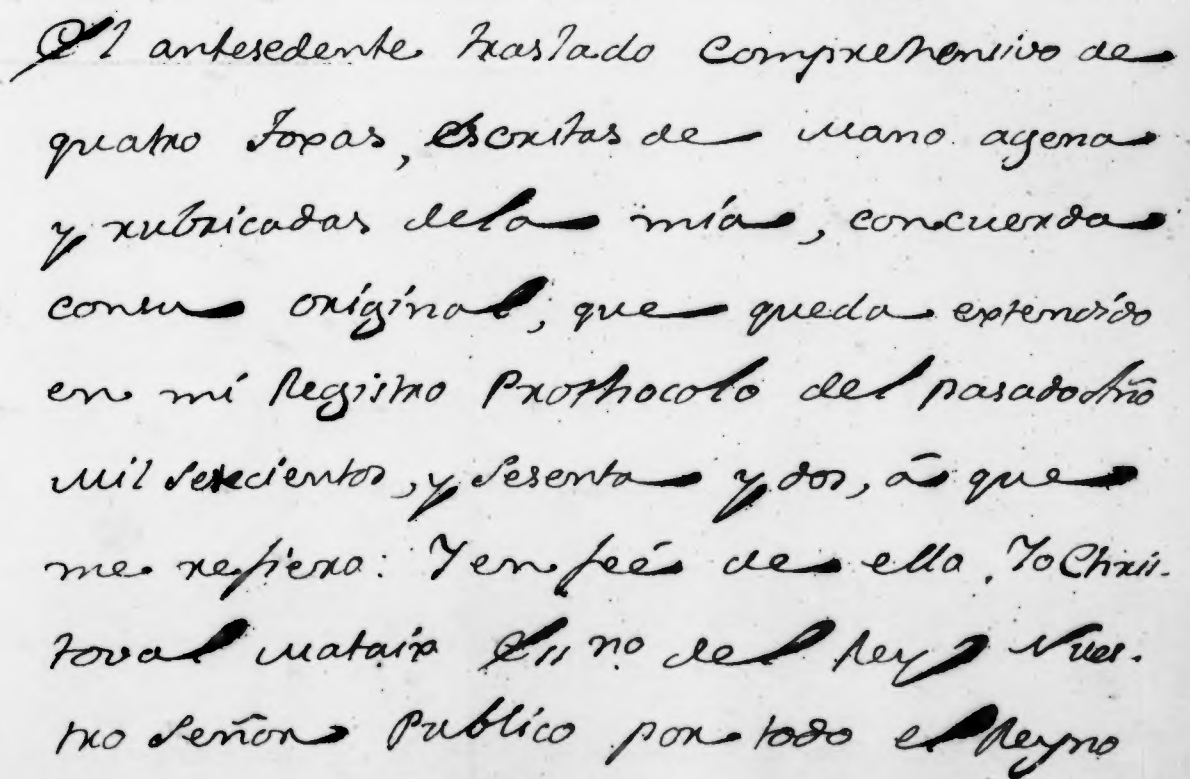 El antesedente traslado Comprehensivo de
quatro Foxas, escritas de mano agena
y rubricadas dela mía, concuerda
consu original, que queda extendido
en mi Registro Prothocolo del pasado Año
Mil Setecientos, y Sesenta y dos, à que
me refiero: Y en feé de ella, Yo Chris-
toval Mataix Ess.no del Rey Nues-
tro Señor Publico por todo el Reyno